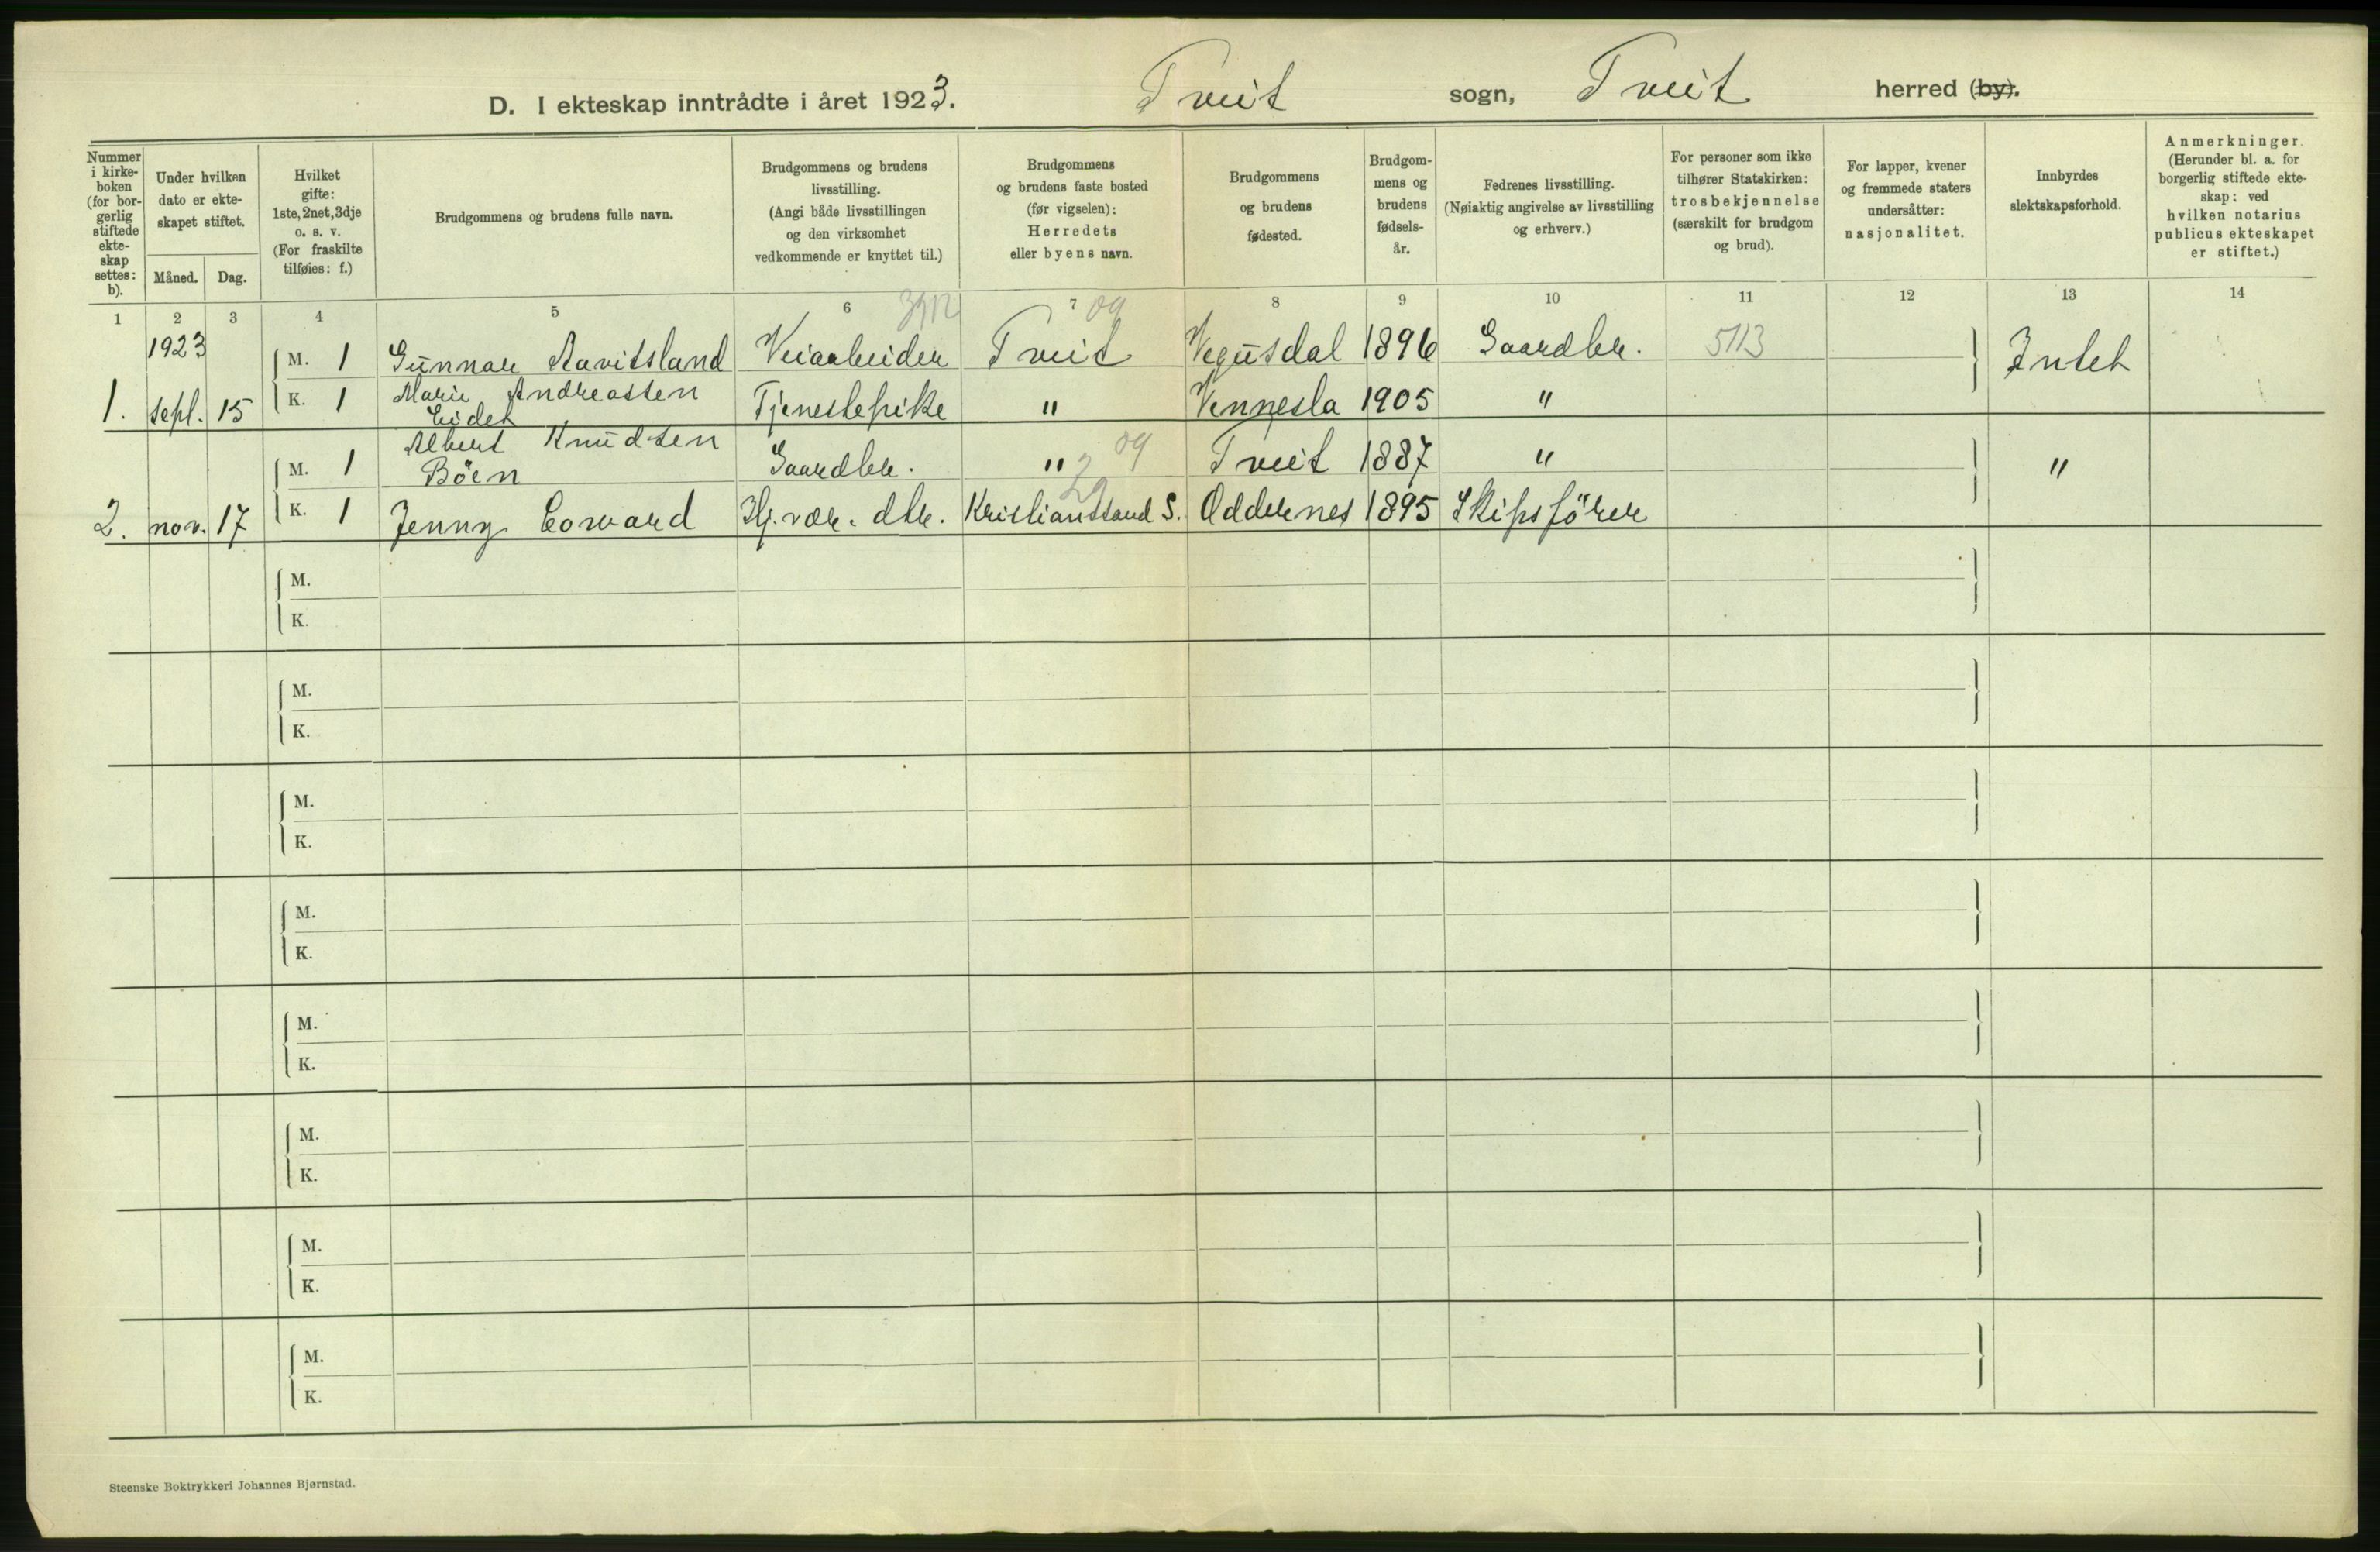 D. I ekteskap inntrådte i året 1923. Tveit sogn, Tveit herred (by).
Nummer i kirke-boken (for bor-gerlig stiftede ekte-skap settes: b).
Under hvilken dato er ekte-skapet stiftet.
Måned. Dag.
Hvilket gifte: 1ste, 2net, 3dje o. s. v. (For fraskilte tilføies: f.)
Brudgommens og brudens fulle navn.
Brudgommens og brudens livsstilling. (Angi både livsstillingen og den virksomhet vedkommende er knyttet til.)
Brudgommens og brudens faste bosted (før vigselen): Herredets eller byens navn.
Brudgommens og brudens fødested.
Brudgom-mens og brudens fødsels-år.
Fedrenes livsstilling. (Nøiaktig angivelse av livsstilling og erhverv.)
For personer som ikke tilhører Statskirken: trosbekjennelse (særskilt for brudgom og brud).
For lapper, kvener og fremmede staters undersåtter: nasjonalitet.
Innbyrdes slektskapsforhold.
Anmerkninger. (Herunder bl. a. for borgerlig stiftede ekte-skap: ved hvilken notarius publicus ekteskapet er stiftet.)
1 2 3 4 5 6 7 8 9 10 11 12 13 14
3912 09
1923 M. 1 Gunnar Aavitsland Veiarbeider Tveit Vegusdal 1896 Gaardbr. 5113 Intet
1. sept. 15 K. 1 Marie Andreassen Eidet Tjenestepike " Vennesla 1905 "
M. 1 Albert Knudsen Böen Gaardbr. " 09 Tveit 1887 " "
2. nov. 17 K. 1 Jenny Coward Hj. vær. dtr. Kristianssand S. Oddernes 1895 Skipsförer
M.
K.
M.
K.
M.
K.
M.
K.
M.
K.
M.
K.
M.
K.
M.
K.
Steenske Boktrykkeri Johannes Bjørnstad.